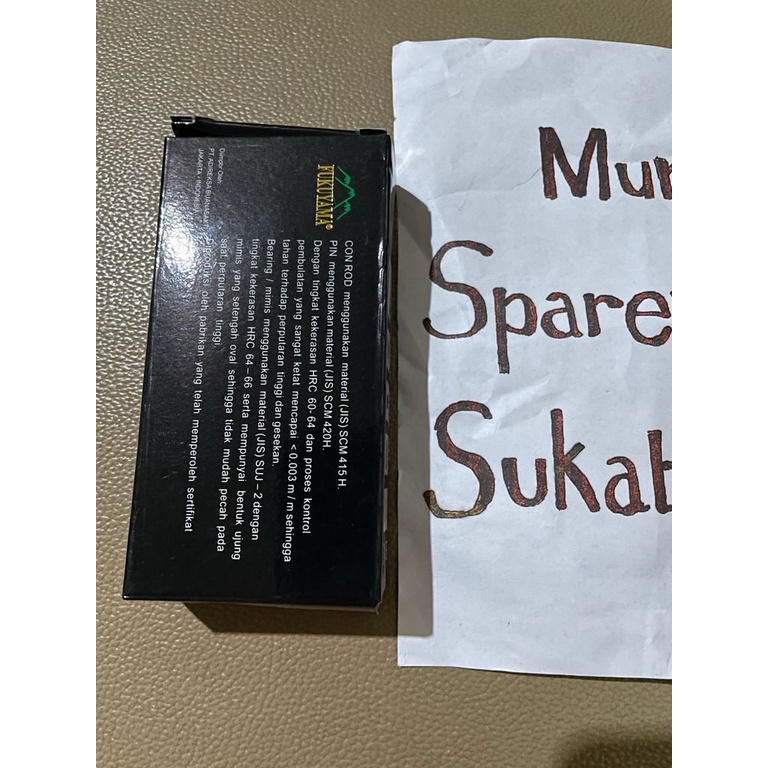 FUKUYAMA®
CON ROD menggunakan material (JIS) SCM 415 H.
PIN menggunakan material (JIS) SCM 420H.
Dengan tingkat kekerasan HRC 60-64 dan proses kontrol
pembulatan yang sangat ketat mencapai <0,003 m/m sehingga
tahan terhadap perpularan tinggi dan gesekan.
Bearing / mimis menggunakan material (JIS) SUJ – 2 dengan
tingkat kekerasan HRC 64 – 66 serta mempunyai bentuk ujung
mimis yang setengah oval sehingga tidak mudah pecah pada
saat perputaran tinggi.
Diproduksi oleh pabrikan yang telah memperoleh sertifikat
Diimpor Oleh:
PT. ADIREKSA
JAKARTA - INDONESIA
Mur
Spare
Sukab